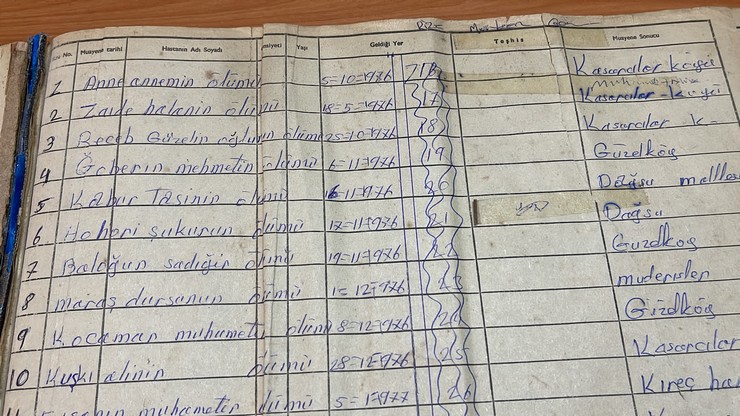 No. Muayene tarihi Hastanın Adı Soyadı Yaşı Geldiği Yer Teşhis Muayene Sonucu
1 Anneannemin ölümü 5=10=1976 Kasarcılar köyü
2 Zaide halanin ölümü 18=5=1976 17 Kasarcılar-köyü
3 Receb Güzelin oğlunun ölümü 25=10=1976 18 Kasarcılar K-
4 mehmetin ölümü 6=11=1976 19 Güzelköy
5 Kabur Taşinin ölümü 16=11=1976 Dağsu
6 şukurun ölümü 17=11=1976 21 Dağsu
7 Baloğun sadiğin ölümü 19=11=1976 22 Güzelköy
8 maraş dursunun ölümü 1=12=1976 23 muderisler
9 Kocaman muhametin ölümü 8=12=1976 24 Güzelköy
10 Kuşkı alinin ölümü 28=12=1976 25 Kasarcılar
muhametin ölümü 5=1=1977 26 Kireç